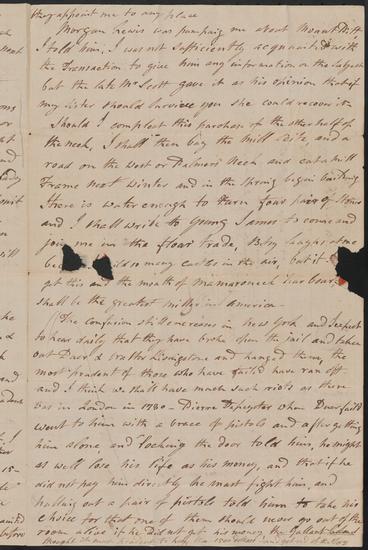 they appoint me to any place
Morgan Lewis was pumping me about Mount Pitt
I told him, I was not sufficiently acquainted with
the Transaction to give him any information on the Subject
but the late Mr Scott gave it as his opinion that if
my sister should survive you she could recover it.
Should I compleat this purchase of the other half of
the neck, I shall then buy the Mill Site, and a
road on the west or Palmers Neck and cut a mill
Frame next winter and in the spring begin building
There is water enough to turn four pair of Stones
and I shall write to young James to come and
join me in the flour trade, Betsy laughs at me
so many castles in the air, but if
get this and the mouth of Mamaroneck harbour
shall be the greatest miller in America.
The confusion still increases in New York and I expect
to hear daily that they have broke open the jail and taken
out Duer & Walter Livingstone and hanged them, the
most prudent of those who have failed have ran off
and I think we shall have much such riots as there
was in London in 1780 - Pierre Depeyster when Duer faild
went to him with a brace of pistols and after getting
him alone and locking the door told him, he might
as well lose his life as his money, and that if he
did not pay him directly he must fight him, and
pulling out a pair of pistols told him to take his
choice for that one of them should never go out of the
room alive if he did not get his money, the Gallant